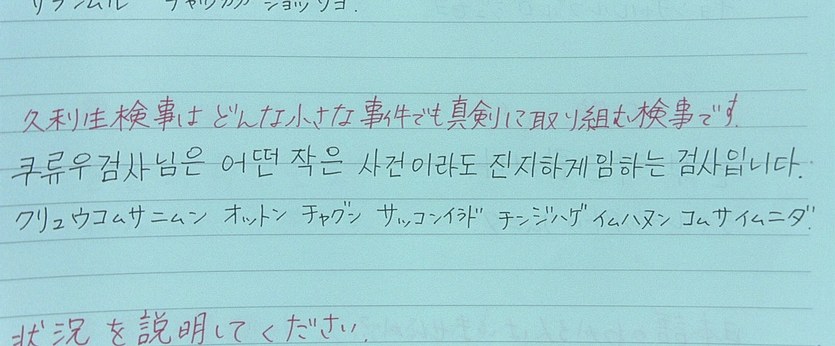 久利生検事は どんな小さな事件でも真剣に取り組む検事です.
쿠류우검사님은 어떤 작은 사건이라도 진지하게임하는 검사입니다.
クリュウコムサニムン オットン チャグン サッコンイラド チンジハゲ イムハヌン コムサイムニダ.
状況を説明してください.